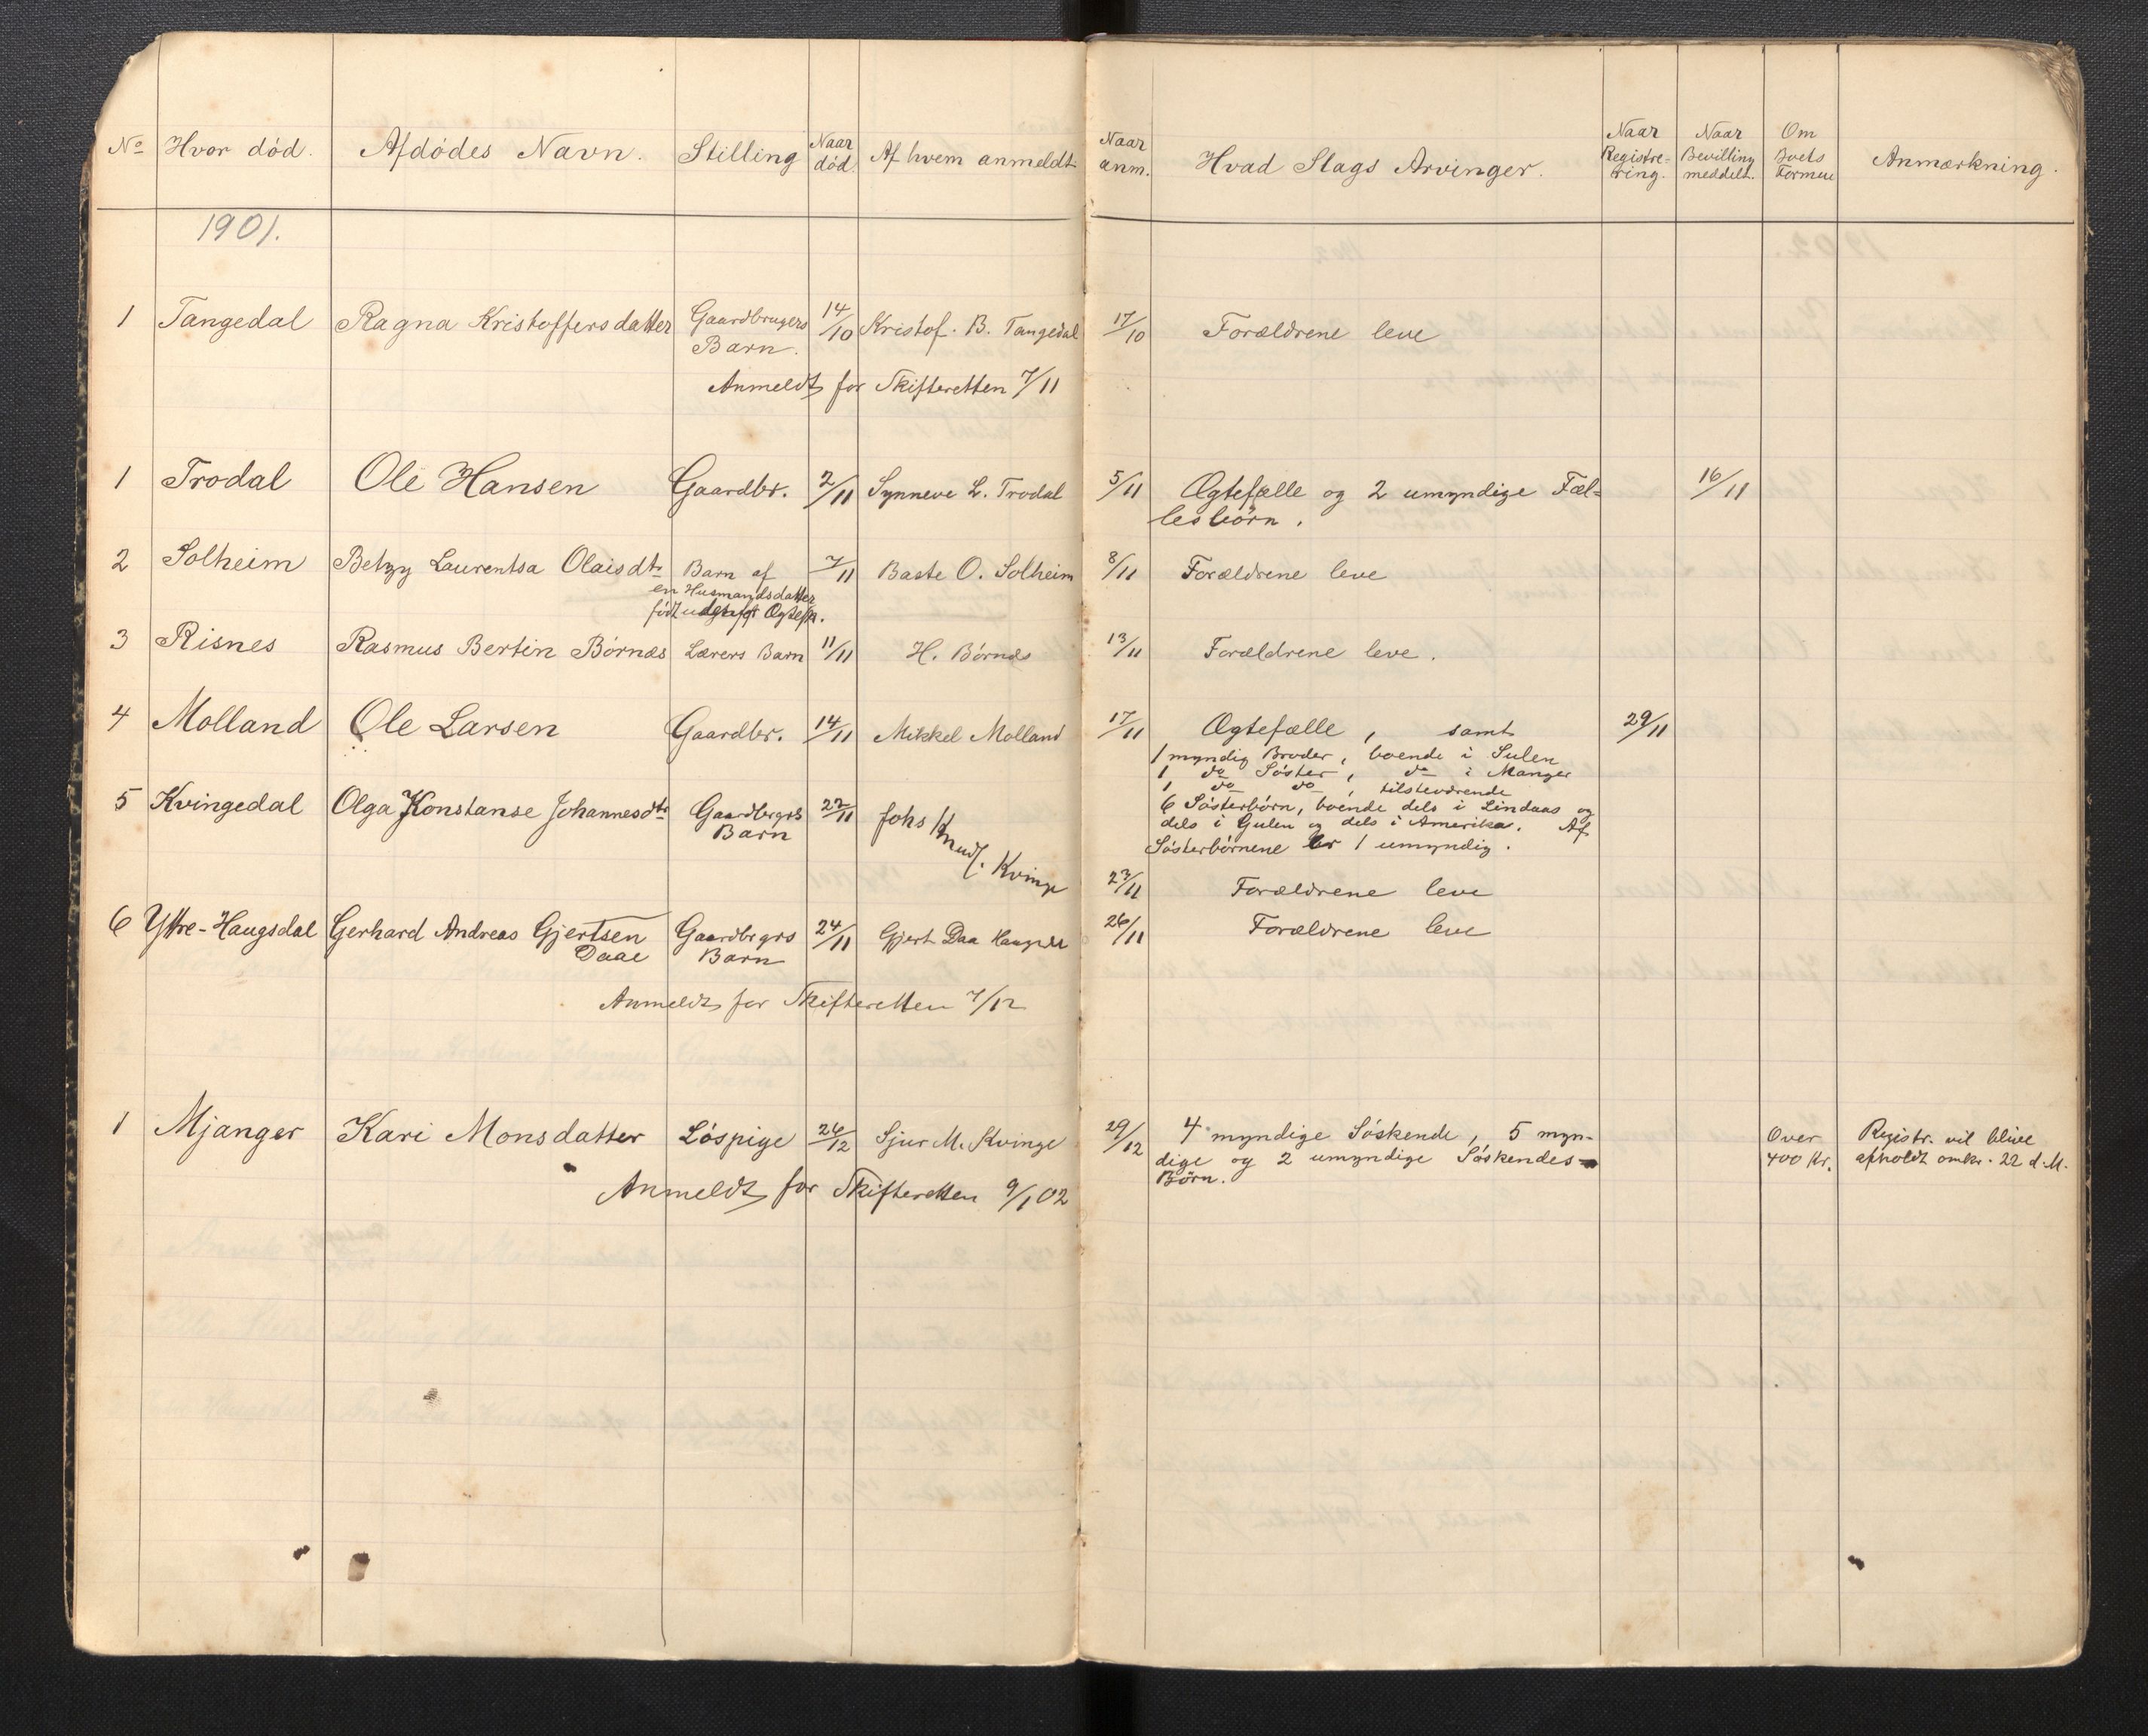 No Hvor död. Afdödes Navn. Stilling Naar död. Af hvem anmeldt Naar anm. Hvad Slags Arvinger. Naar Registre-ring. Naar Bevilling meddelt. Om Boets Formue Anmærkning.
1901.
1 Tangedal Ragna Kristoffersdatter Gaardbrugers 14/10 Kristof. B. Tangedal 17/10 Forældrene leve
Barn.
Anmeldt for Skifteretten 7/11
1 Trodal Ole Hansen Gaardbr. 2/11 Synneve L. Trodal 5/11 Ægtefælle og 2 umyndige Fæl- 16/11
lesbörn.
2 Solheim Betzy Laurentsa Olaisdtr Barn af 7/11 Baste O. Solheim 8/11 Forældrene leve
en Husmandsdatter
födt udenfor Ægtesk.
3 Risnes Rasmus Bertin Börnæs Lærers Barn 11/11 H. Börnæs 13/11 Forældrene leve.
4 Molland Ole Larsen Gaardbr. 14/11 Mikkel Molland 17/11 Ægtefælle, samt 29/11
1 myndig Broder, boende i Sulen
1 do Söster, do i Manger
1 do do, tilsteværende
6 Sösterbörn, boende dels i Lindaas og
dels i Gulen og dels i Amerika. Af
Sösterbörnene er 1 umyndig.
5 Kvingedal Olga Konstanse Johannesdtr Gaardbrgrs 22/11 Johs Knuds. Kvinge 23/11 Forældrene leve
Barn
6 Yttre-Haugsdal Gerhard Andreas Gjertsen Gaardbrgrs 24/11 Gjert Daa 26/11 Forældrene leve
Daae Barn
Anmeldt for Skifteretten 7/12
1 Mjanger Kari Monsdatter Löspige 26/12 Sjur M. Kvinge 29/12 4 myndige Söskende, 5 myn- Over Registr. vil blive
dige og 2 umyndige Söskendes- 400 Kr. afholdt omkr. 22 d.M.
Börn.
Anmeldt for Skifteretten 9/1 02